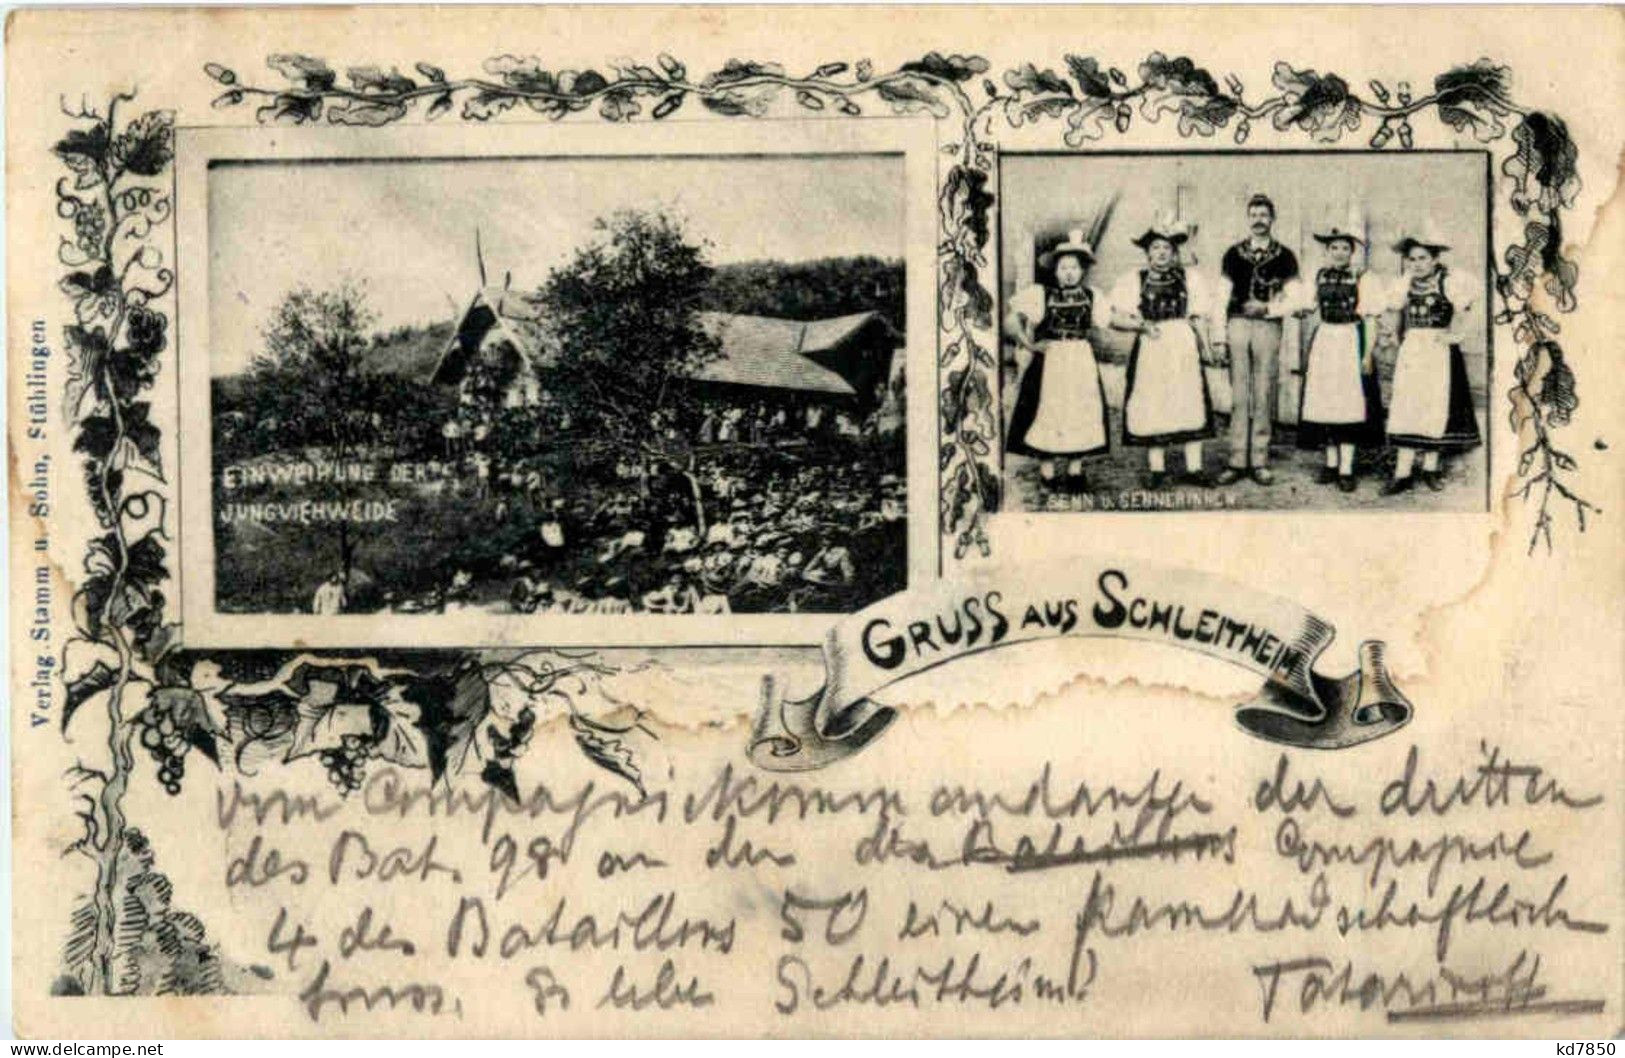 Verlag. Stamm u. Sohn, Stühlingen
EINWEIHUNG DER
JUNGVIEHWEIDE
SENN U. SENNERINNEN
GRUSS AUS SCHLEITHEIM
vom Compagnickommandant der dritten
des Bat. 98 an den Bataillons Compagnie
4 des Bataillons 50 einen Kammeradschaftlich
Gruss. Es lebe Schleitheim!
kd7850